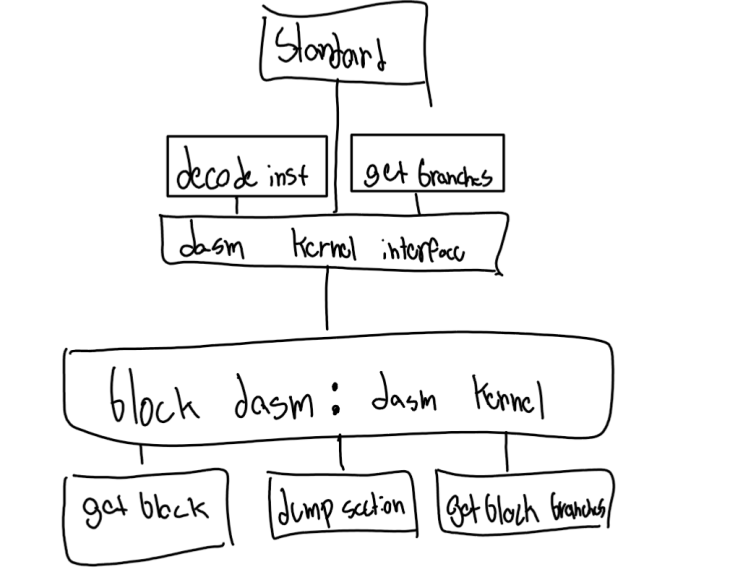 Standard
decode inst
get branches
dasm kernel interface
block dasm: dasm kernel
get block
dump section
get block branches